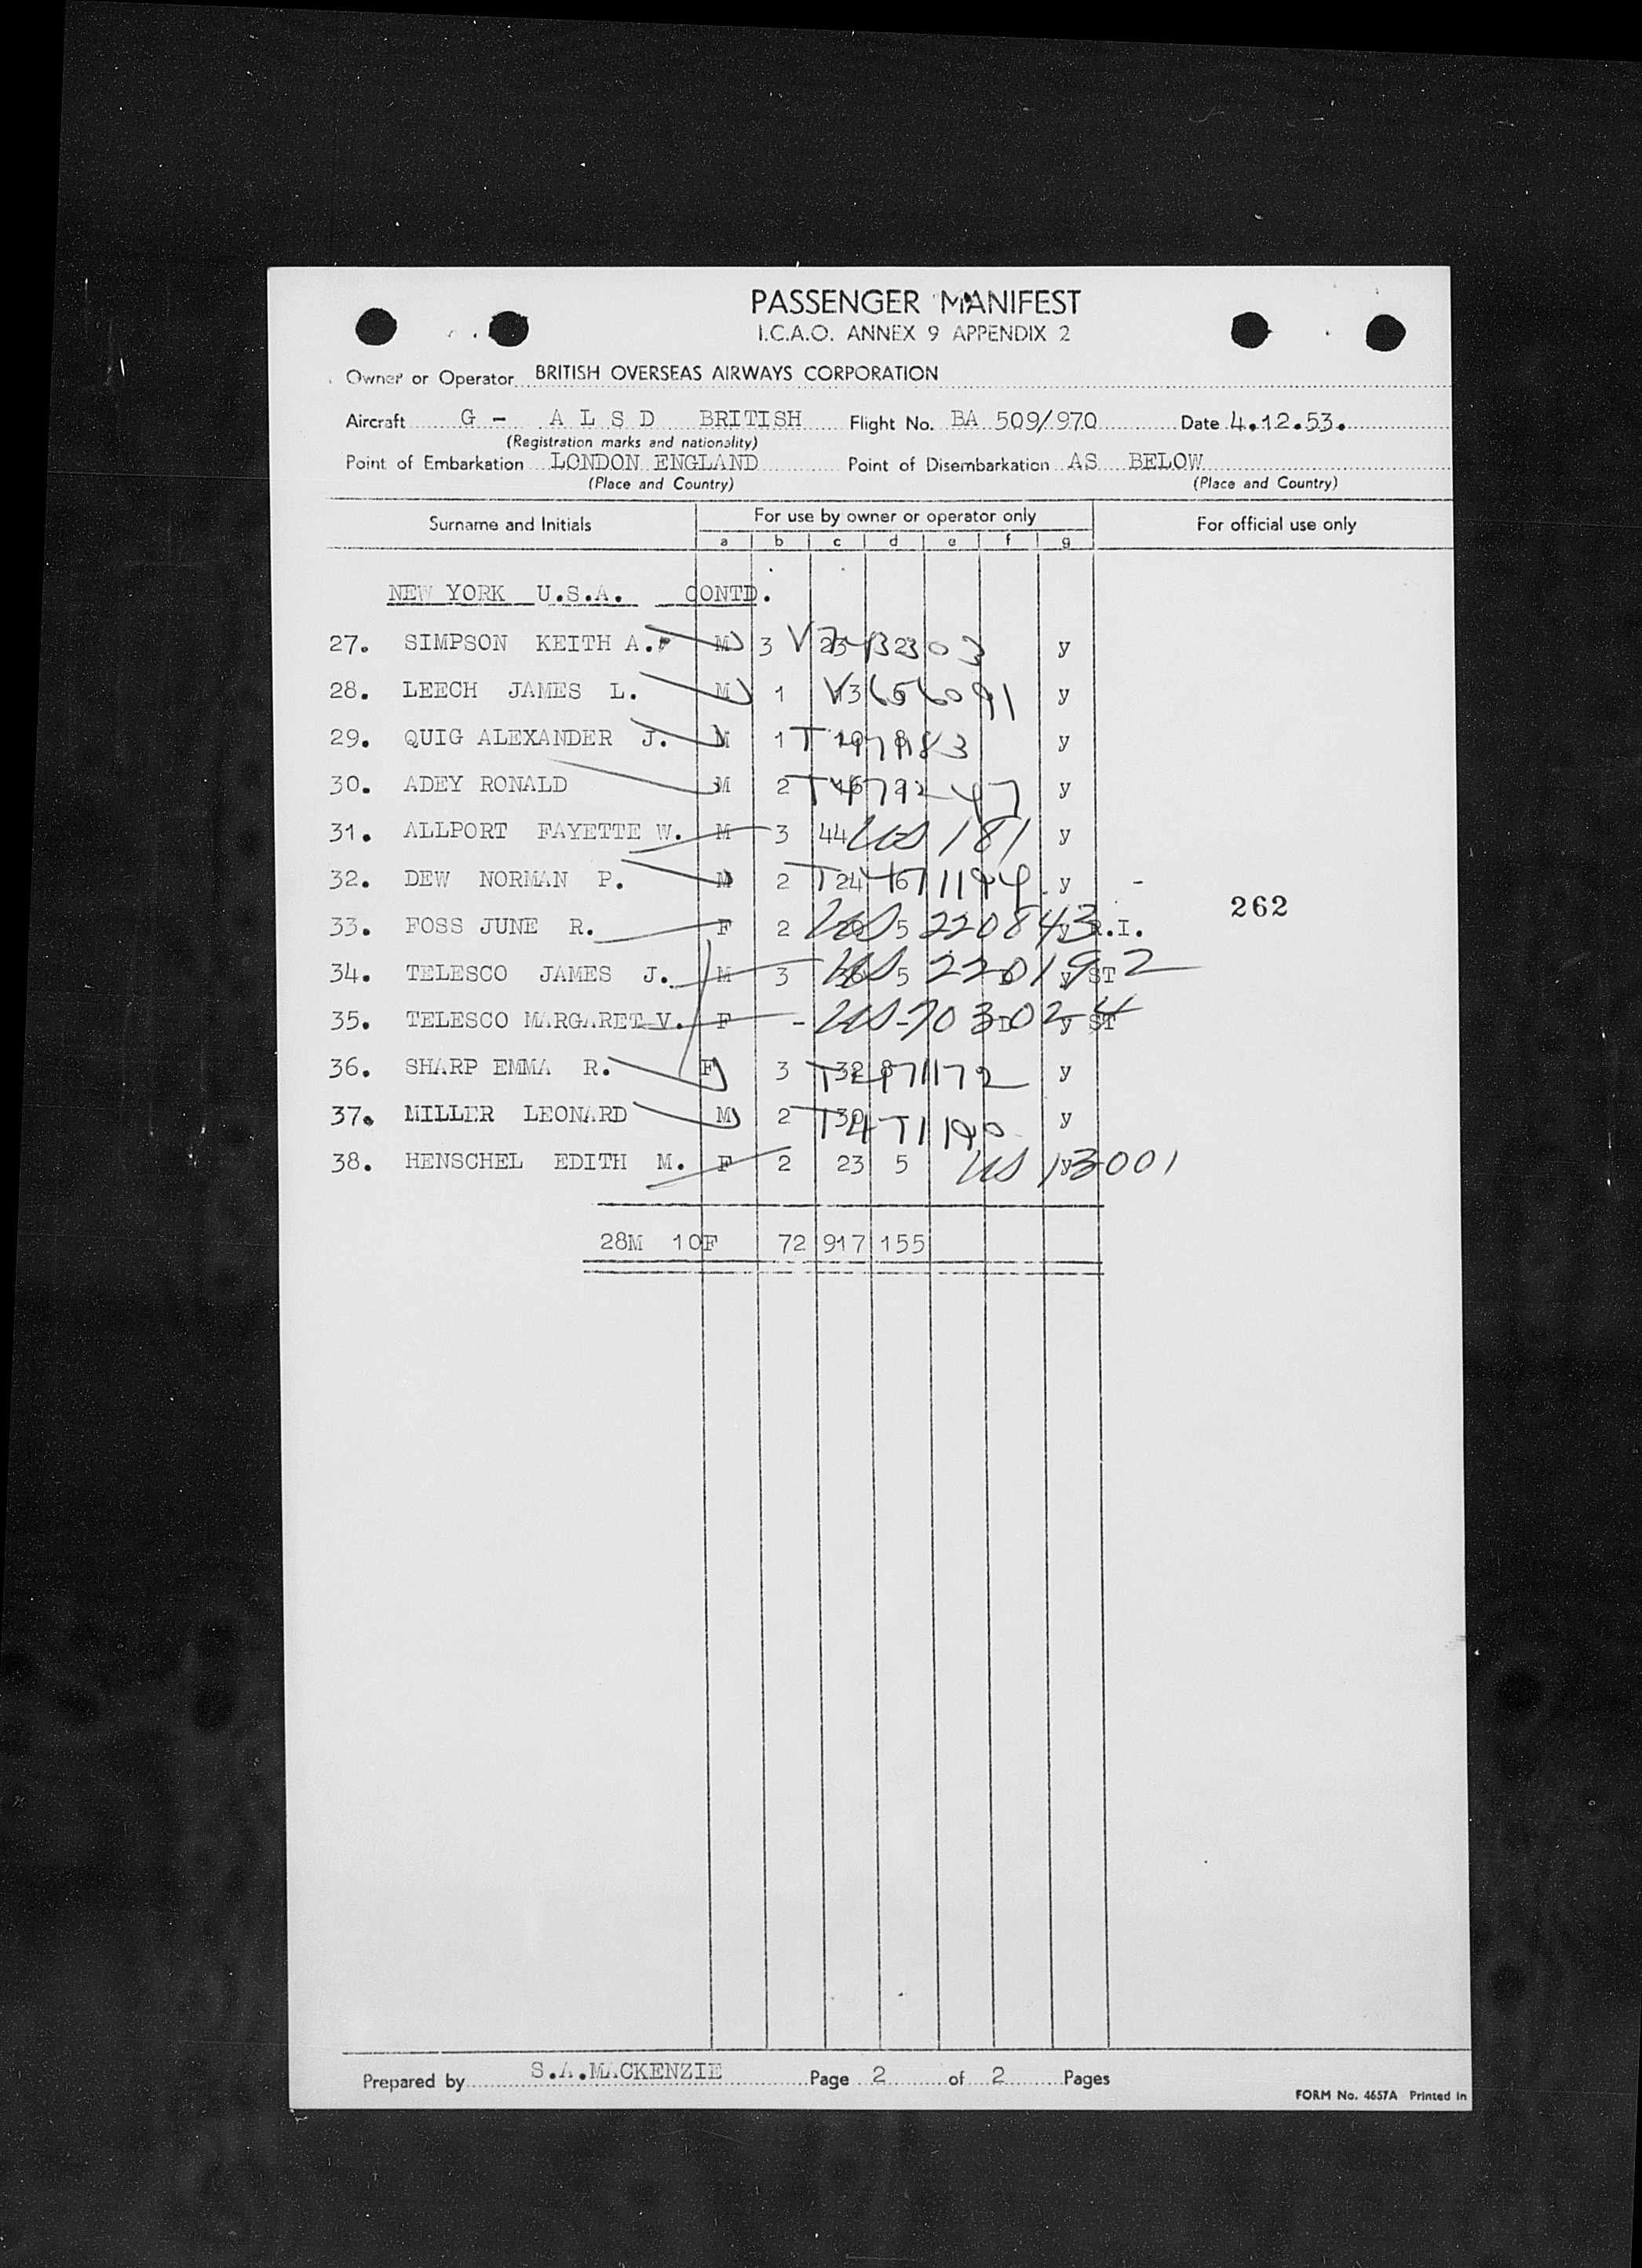 PASSENGER MANIFEST
I.C.A.O. ANNEX 9 APPENDIX 2
Owner or Operator BRITISH OVERSEAS AIRWAYS CORPORATION
Aircraft G - A L S D BRITISH Flight No. BA 509/970 Date 4.12.53.
(Registration marks and nationality)
Point of Embarkation LONDON ENGLAND Point of Disembarkation AS BELOW
(Place and Country) (Place and Country)
Surname and Initials For use by owner or operator only For official use only
a b c d e f g
NEW YORK U.S.A. CONTD.
27. SIMPSON KEITH A. M 3 y
28. LEECH JAMES L. M 1 V3656091 y
29. QUIG ALEXANDER J. M 1 y
30. ADEY RONALD M 2 y
31. ALLPORT FAYETTE W. M 3 44 US 181 y
32. DEW NORMAN P. M 2 24 y -
262
33. FOSS JUNE R. F 2 US 5 220843 y R.I.
34. TELESCO JAMES J. M 3 36 US 5 220192 y ST
35. TELESCO MARGARET V. F - US - 703024 y ST
36. SHARP EMMA R. F 3 y
37. MILLER LEONARD M 2 30 y
38. HENSCHEL EDITH M. F 2 23 5 US 13001 y
28M 10F 72 917 155
Prepared by S.A.MACKENZIE Page 2 of 2 Pages
FORM No. 4657A Printed in